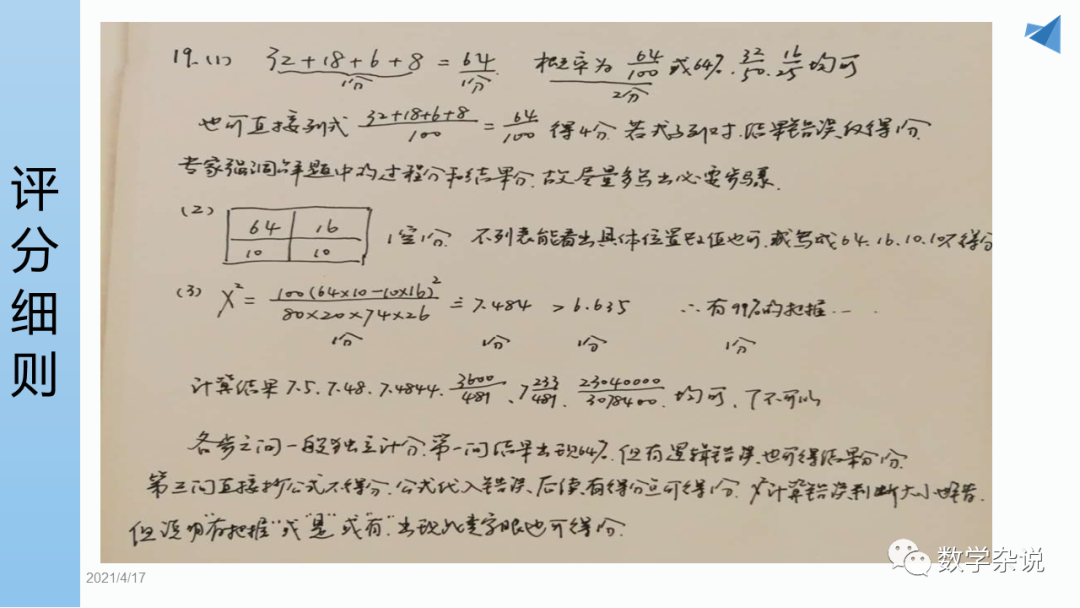 评分细则
19.(1) 32+18+6+8 = 64 概率为 64/100 或64%. 32/50. 16/25 均可
1分 1分 2分
也可直接列式 32+18+6+8/100 = 64/100 得4分 若式子列对,结果错误仅得1分.
专家强调解题中的过程分和结果分,故尽量多写出必要步骤.
(2)
64 16
10 10
1空1分. 不列表能看出具体位置取值也可,或写成64.16.10.10不得分
(3) X² = 100(64×10-10×16)²/80×20×74×26 ≐ 7.484 > 6.635 ∴有99%的把握……
1分 1分 1分 1分
计算结果7.5、7.48、7.4844、3600/481、7 233/481、23040000/3078400、均可、7不可以
各步之间一般独立计分,第一问结果出现64%,但有逻辑错误,也可得结果分1分.
第三问直接抄公式不得分,公式代入错误,后续有得分点可得1分. X²计算错误判断大小也错,
但说明"有把握"或"是"或"有"出现此类字眼也可得1分.
2021/4/17
数学杂说